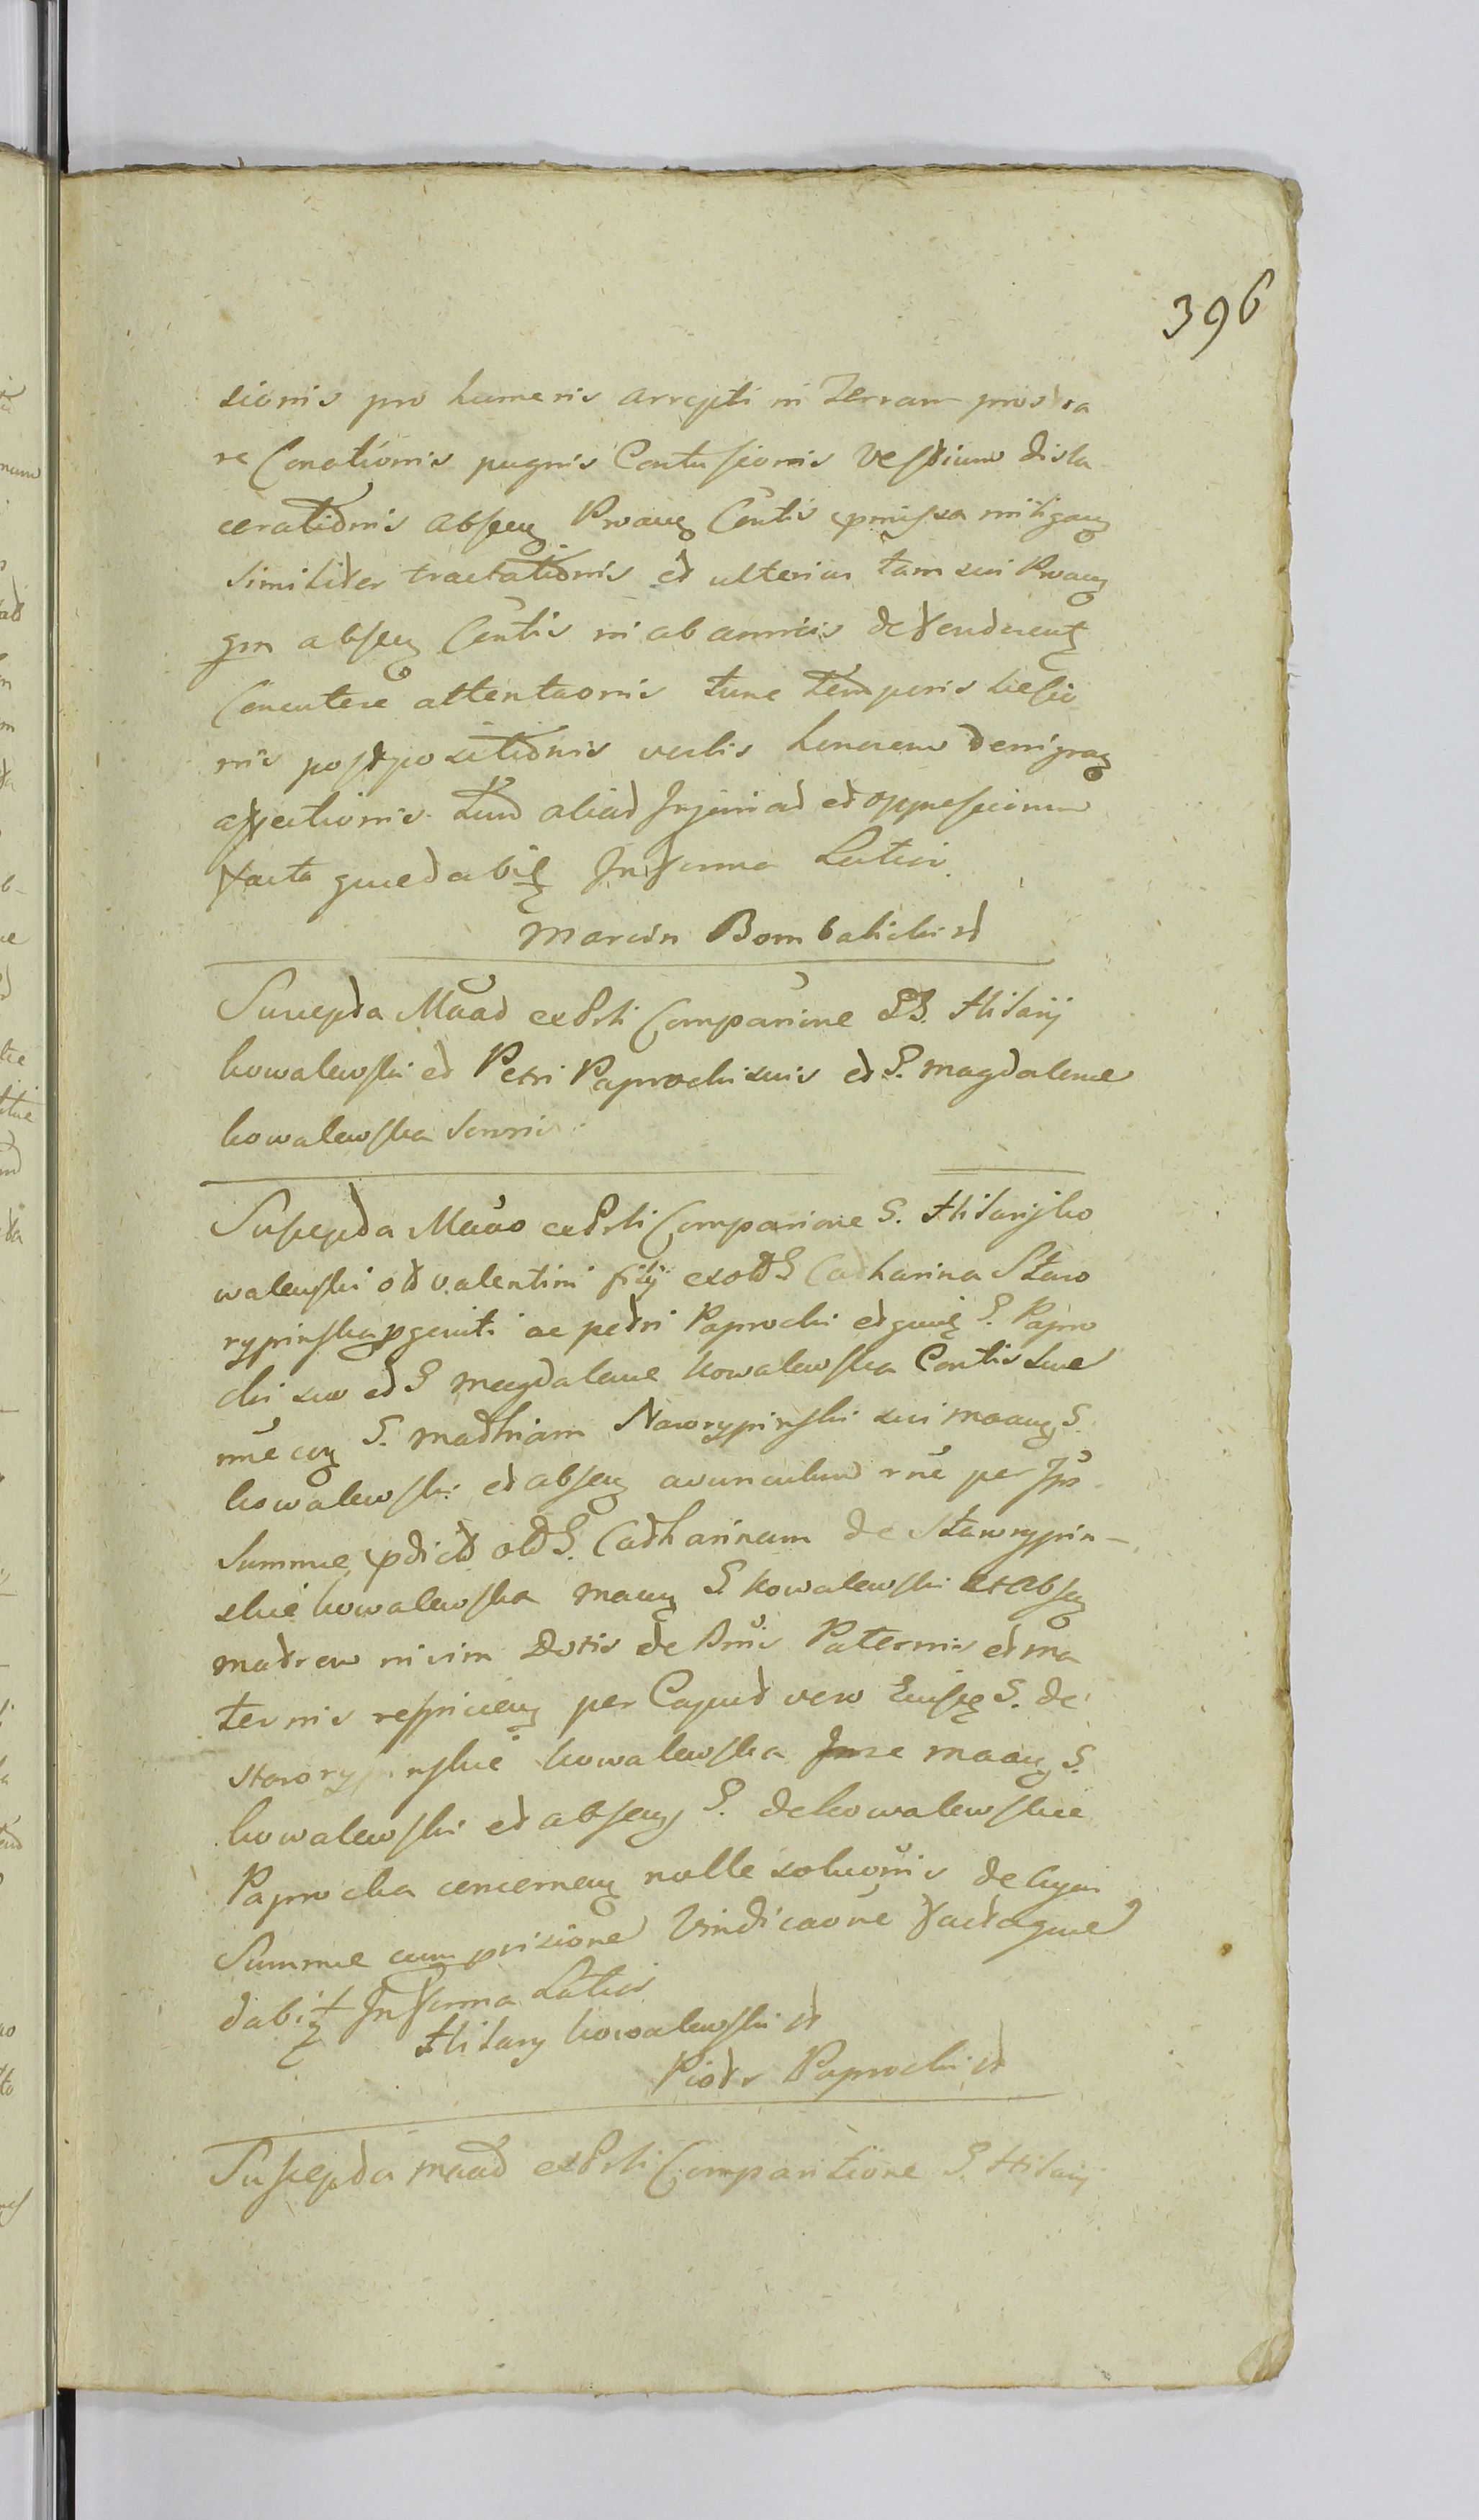 396
sionis pro humeris arrepti in Terram prostra
re Conationis pugnis Contusionis Vestium dila
cerationis absen Pnoan Contis pmissa mitigan
similiter tractationis et ulterius tam sui Pnoan
qm absen Contis ni ab amicis defenderent
Concutere attentaonis tunc temporis laesio
nis postpositionis verbis honorem denigran
affectionis tum aliad Injuriad et oppressionum
facta quedabit In forma Latiori
Marcin Bombalicki st
Suscepta Maad ex Psti Comparione GG. Hilarij
Kowalewski et Petri Paprocki suis et G. Magdalenae
Kowalewska Sororis
Suscepta Maao ex Psti Comparione G. Hilarij Ko
walewski ol Valentini filij ex ol G Catharina Staro
rypinska pgeniti ac Petri Paprocki et gnis G. Papro
cki suo et G Magdalenae Kowalewska Contis suae
nne con G. Mathiam Starorypinski sui maan G.
Kowalewski et absen avunculum rne per Ips
Summae pdict ol G. Catharinam de Starorypin-
skie Kowalewska maan G. Kowalewski et absen
matrem in vim Dotis de Bnis Paternis et ma
ternis respicien per Caput vero Eiusd G. de
Starorypinskie Kowalewska maan G.
Kowalewski et absen G. de Kowalewskie
Paprocka concernen nulle soluonis de huius
Summae cum provisione Vindicaone facta quae
dabit In forma Latiori
Hilary Kowalewski st
Piotr Paprocki st
Suscepta Maad ex Psti Comparitione G. Hilarij